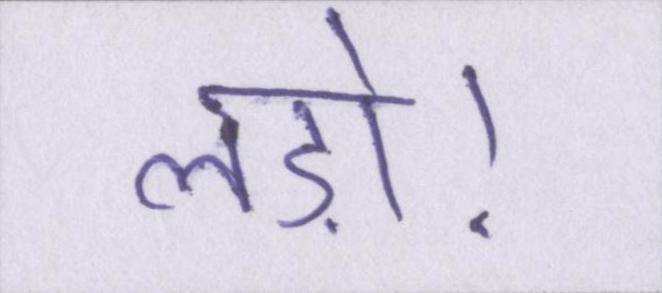 लड़ो!